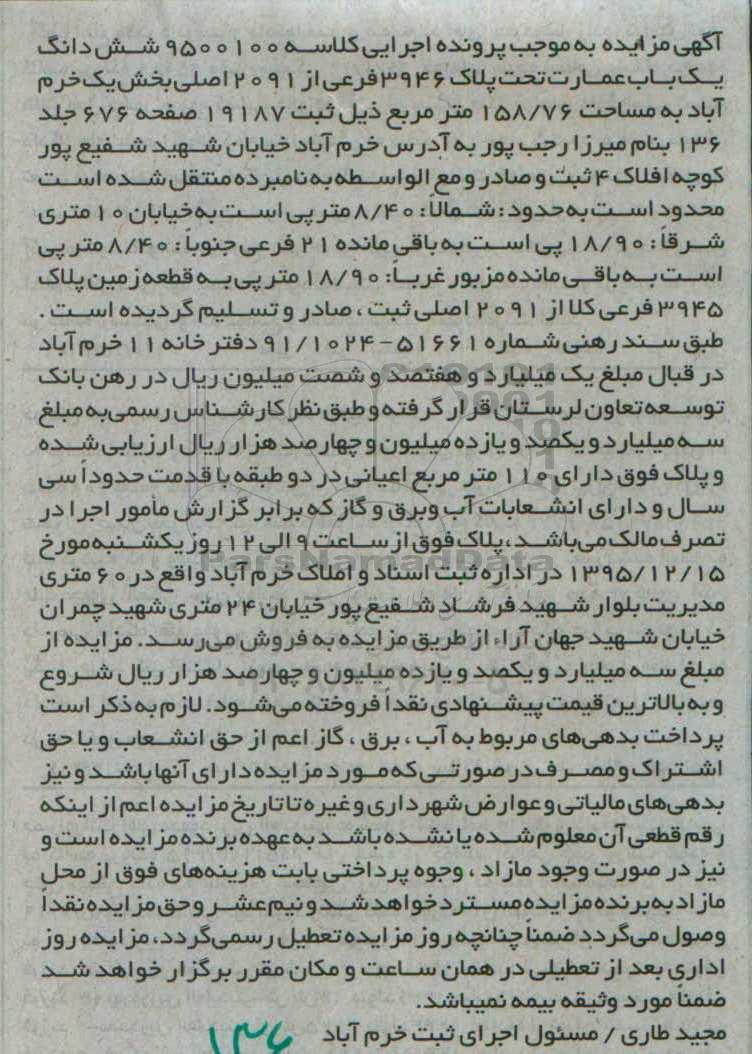 آگهی مزایده به موجب پرونده اجرایی کلاسه ۹۵۰۰۱۰۰ شش دانگ
یک باب عمارت تحت پلاک ۳۹۴۶ فرعی از ۲۰۹۱ اصلی بخش یک خرم
آباد به مساحت ۱۵۸/۷۶ متر مربع ذیل ثبت ۱۹۱۸۷ صفحه ۶۷۶ جلد
۱۳۶ بنام میرزا رجب پور به آدرس خرم آباد خیابان شهید شفیع پور
کوچه افلاک ۴ ثبت و صادر و مع الواسطه به نامبرده منتقل شده است
محدود است به حدود: شمالاً: ۸/۴۰ متر پی است به خیابان ۱۰ متری
شرقاً: ۱۸/۹۰ پی است به باقی مانده ۲۱ فرعی جنوباً: ۸/۴۰ متر پی
است به باقی مانده مزبور غرباً: ۱۸/۹۰ متر پی به قطعه زمین پلاک
۳۹۴۵ فرعی کلا از ۲۰۹۱ اصلی ثبت، صادر و تسلیم گردیده است.
طبق سند رهنی شماره ۵۱۶۶۱-۹۱/۱۰۲۴ دفتر خانه ۱۱ خرم آباد
در قبال مبلغ یک میلیارد و هفتصد و شصت میلیون ریال در رهن بانک
توسعه تعاون لرستان قرار گرفته و طبق نظر کارشناس رسمی به مبلغ
سه میلیارد و یکصد و یازده میلیون و چهارصد هزار ریال ارزیابی شده
و پلاک فوق دارای ۱۱۰ متر مربع اعیانی در دو طبقه با قدمت حدوداً سی
سال و دارای انشعابات آب وبرق و گاز که برابر گزارش مامور اجرا در
تصرف مالک می‌باشد، پلاک فوق از ساعت ۹ الی ۱۲ روز یکشنبه مورخ
۱۳۹۵/۱۲/۱۵ در اداره ثبت اسناد و املاک خرم آباد واقع در ۶۰ متری
مدیریت بلوار شهید فرشاد شفیع پور خیابان ۲۴ متری شهید چمران
خیابان شهید جهان آراء از طریق مزایده به فروش می‌رسد. مزایده از
مبلغ سه میلیارد و یکصد و یازده میلیون و چهارصد هزار ریال شروع
و به بالاترین قیمت پیشنهادی نقداً فروخته می‌شود. لازم به ذکر است
پرداخت بدهی‌های مربوط به آب، برق، گاز اعم از حق انشعاب و یا حق
اشتراک و مصرف در صورتی که مورد مزایده دارای آنها باشد و نیز
بدهی‌های مالیاتی و عوارض شهرداری و غیره تا تاریخ مزایده اعم از اینکه
رقم قطعی آن معلوم شده یا نشده باشد به عهده برنده مزایده است و
نیز در صورت وجود مازاد، وجوه پرداختی بابت هزینه‌های فوق از محل
مازاد به برنده مزایده مسترد خواهد شد و نیم عشر و حق مزایده نقداً
وصول می‌گردد ضمناً چنانچه روز مزایده تعطیل رسمی گردد، مزایده روز
اداری بعد از تعطیلی در همان ساعت و مکان مقرر برگزار خواهد شد
ضمناً مورد وثیقه بیمه نمیباشد.
مجید طاری / مسئول اجرای ثبت خرم آباد
۱۳۶
ParsNamadData